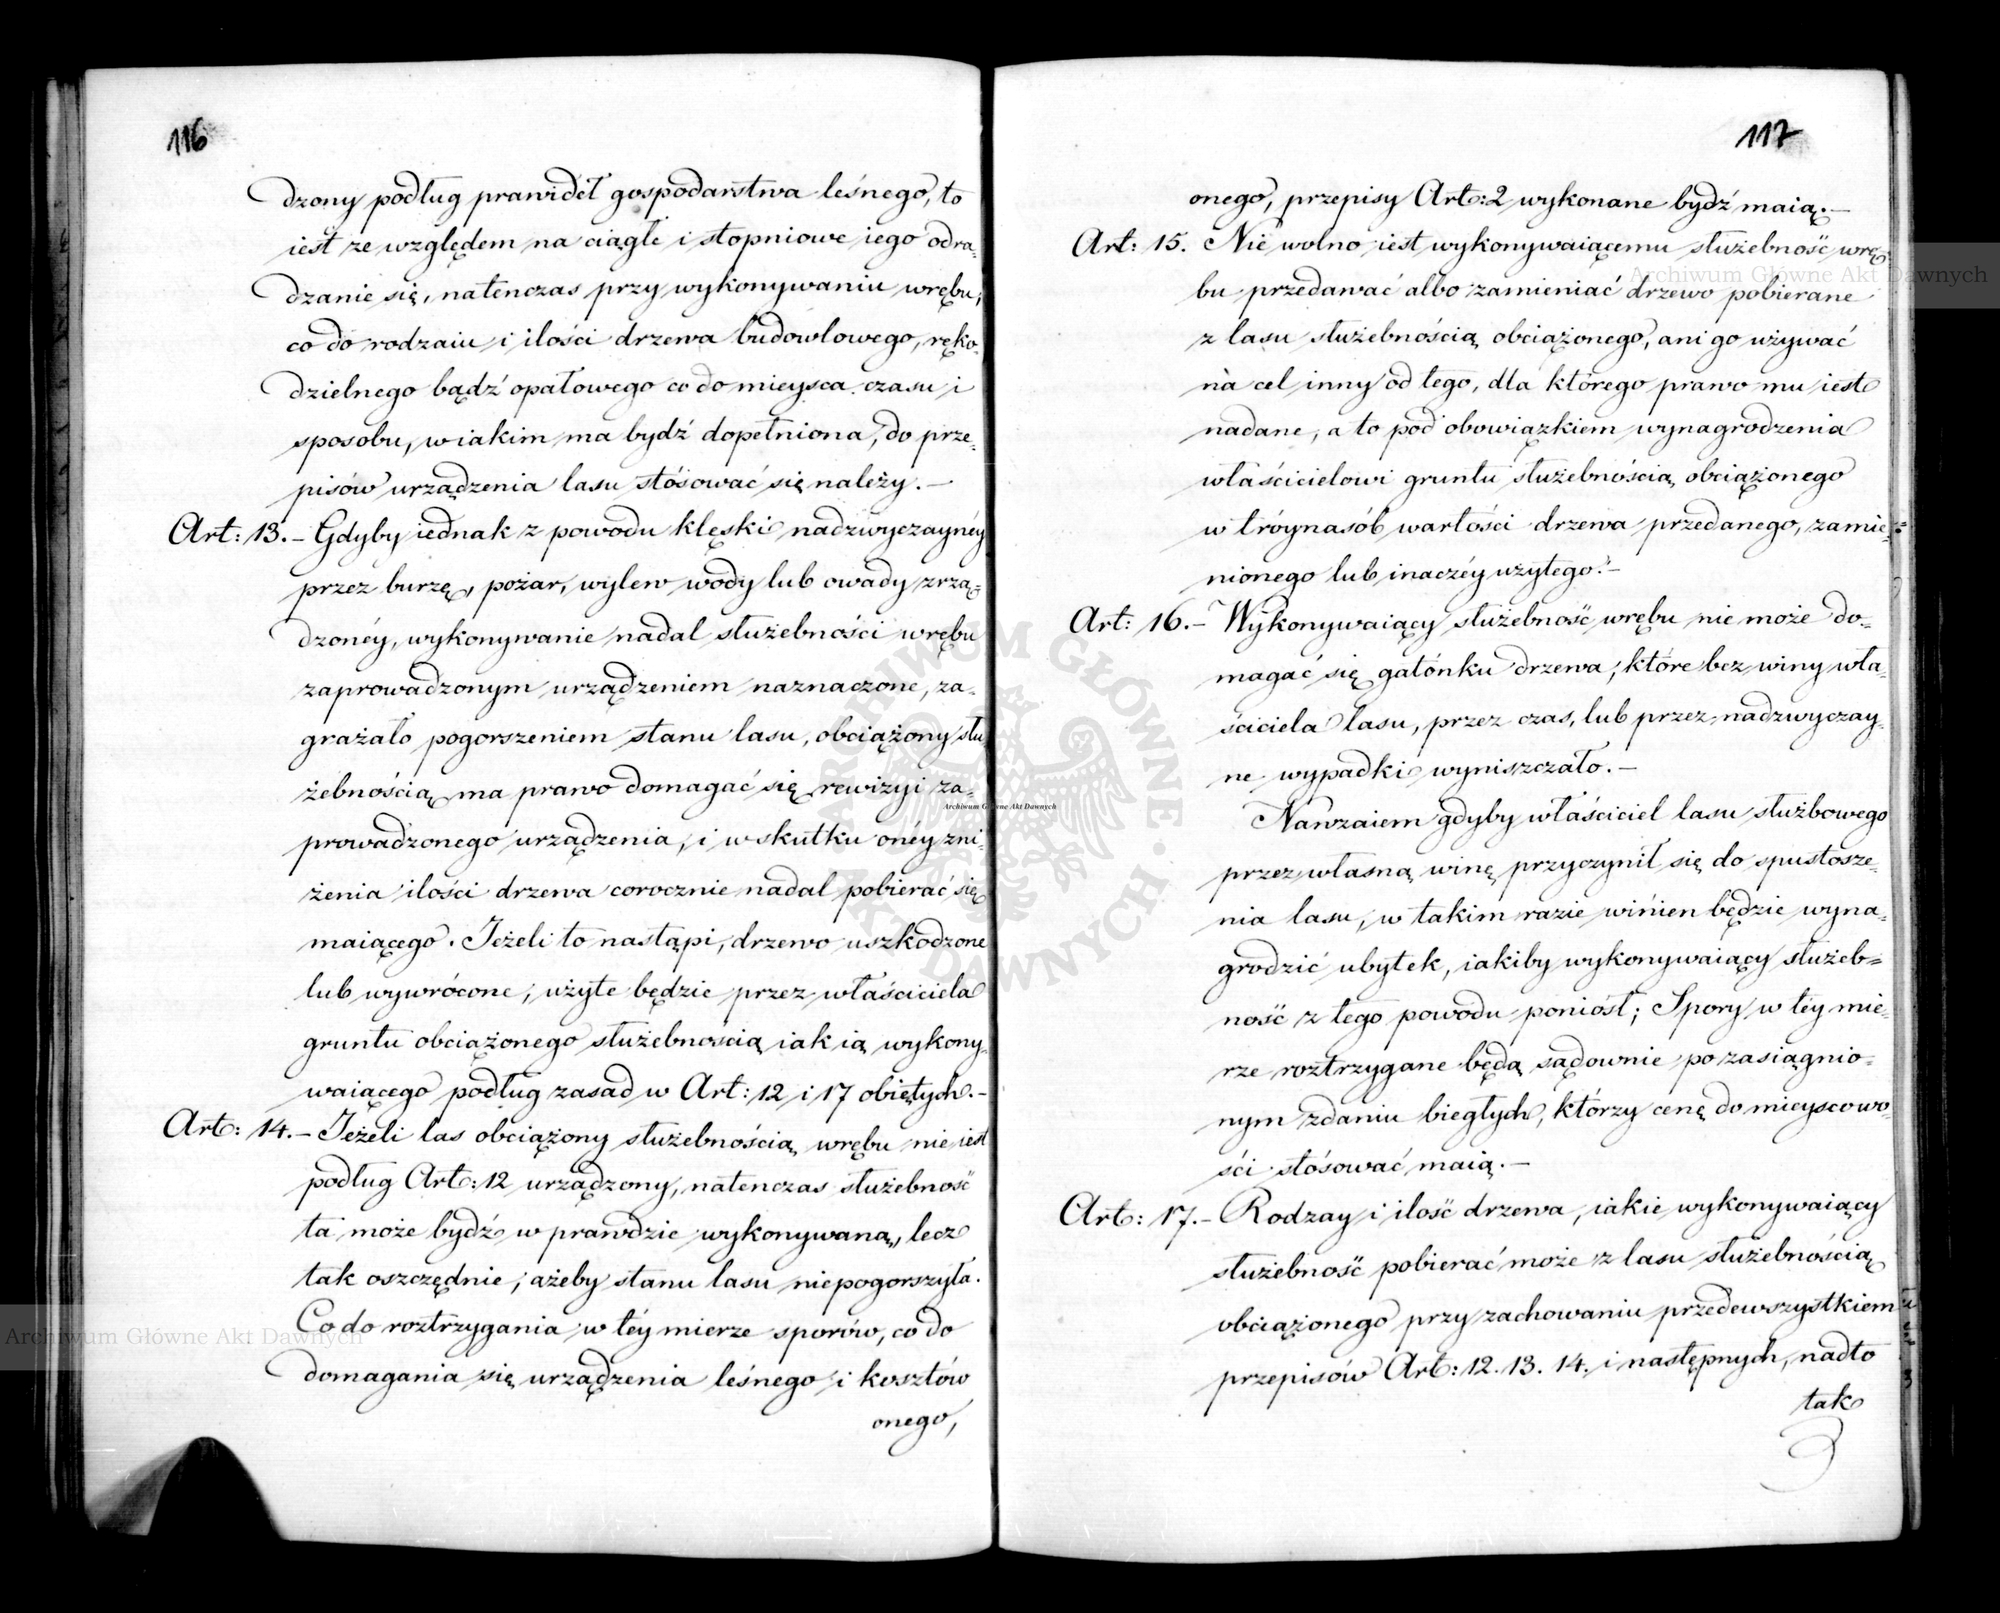 116
dzony podług prawideł gospodarstwa leśnego, to
iest ze względem na ciągłe i stopniowe iego odra-
dzanie się, natenczas przy wykonywaniu wrębu,
co do rodzaiu i ilości drzewa budowlowego, ręko-
dzielnego bądź opałowego co do mieysca czasu i
sposobu, w iakim ma bydź dopełniona, do prze-
pisów urządzenia lasu stósować się należy. –
Art: 13. – Gdyby iednak z powodu klęski nadzwyczaynéy
przez burzę, pożar, wylew wody lub owady zrzą-
dzonéy, wykonywanie nadal służebności wrębu
zaprowadzonym urządzeniem naznaczone, za-
grażało pogorszeniem stanu lasu, obciążony słu
żebnością ma prawo domagać się rewizyi za-
prowadzonego urządzenia, i w skutku onéy zni-
żenia ilości drzewa corocznie nadal pobierać się
maiącego. Jeżeli to nastąpi, drzewo uszkodzone
lub wywrócone, użyte będzie przez właściciela
gruntu obciążonego służebnością iak ią wykony-
waiącego podług zasad w Art: 12 i 17 obiętych. –
Art: 14. – Jeżeli las obciążony służebnością wrębu nie iest
podług Art: 12 urządzony, natenczas służebność
ta może bydź w prawdzie wykonywaną, lecz
tak oszczędnie, ażeby stanu lasu niepogorszyła.
Co do roztrzygania w téy mierze sporów, co do
domagania się urządzenia leśnego i kosztów
onego,
117
onego, przepisy Art: 2 wykonane bydź maią. –
Art: 15. Nie wolno iest wykonywaiącemu służebność wrę-
bu przedawać albo zamieniać drzewo pobierane
z lasu służebnością obciążonego, ani go używać
na cel inny od tego, dla którego prawo mu iest
nadane, a to pod obowiązkiem wynagrodzenia
właścicielowi gruntu służebnością obciążonego
w tróynasób wartości drzewa przedanego, zamie-
nionego lub inaczéy użytego. –
Art: 16. – Wykonywaiący służebność wrębu nie może do-
magać się gatónku drzewa, które bez winy wła-
ściciela lasu, przez czas, lub przez nadzwyczay-
ne wypadki wyniszczało. –
Nawzaiem gdyby właściciel lasu służbowego
przez własną winę przyczynił się do spustosze-
nia lasu, w takim razie winien będzie wyna-
grodzić ubytek, iakiby wykonywaiący służeb-
ność z tego powodu poniósł; Spory w téy mie-
rze roztrzygane będą sądownie po zasiągnio-
nym zdaniu biegłych, którzy cenę do mieyscowo-
ści stósować maią. –
Art: 17. – Rodzay i ilość drzewa, iakie wykonywaiący
służebność pobierać może z lasu służebnością
obciążonego przy zachowaniu przedewszystkiem
przepisów Art: 12. 13. 14. i następnych, nadto
tak
Archiwum Główne Akt Dawnych
Archiwum Główne Akt Dawnych
Archiwum Główne Akt Dawnych
ARCHIWUM GŁÓWNE AKT DAWNYCH